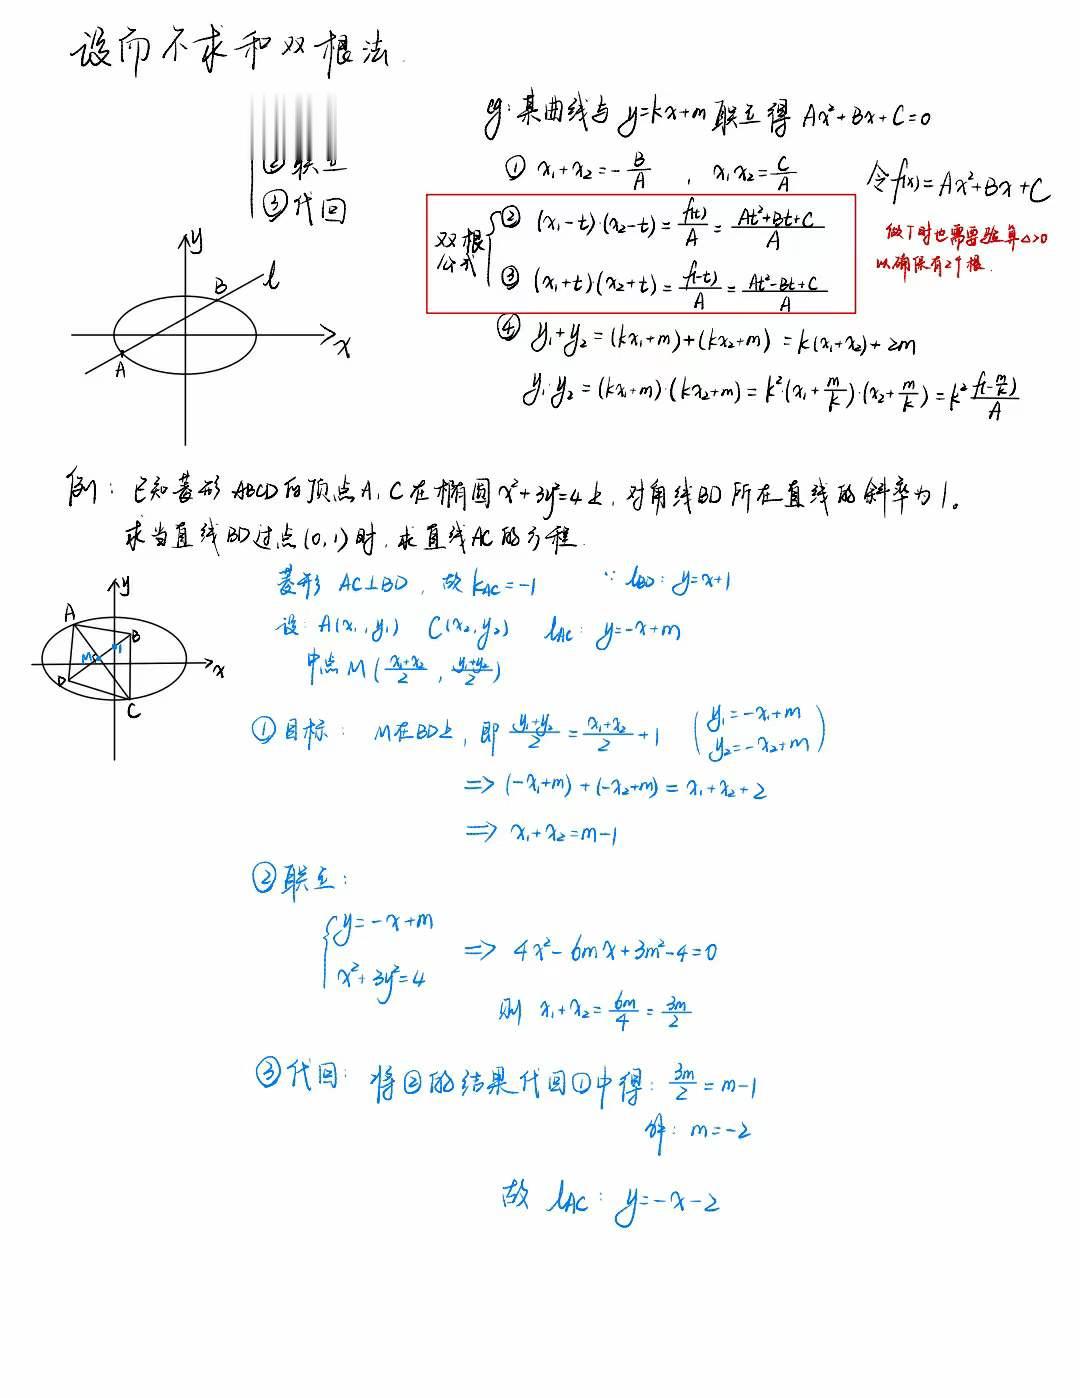 设而不求和双根法.
② 联立
③ 代回
eg: 某曲线与 y=kx+m 联立得 Ax²+Bx+C=0
① x₁+x₂=-B/A , x₁x₂=C/A
令 f(x)=Ax²+Bx+C
双根公式
② (x₁-t)·(x₂-t)=f(t)/A=(At²+Bt+C)/A
③ (x₁+t)(x₂+t)=f(-t)/A=(At²-Bt+C)/A
做T时也需要验算△>0
以确保有2个根.
④ y₁+y₂=(kx₁+m)+(kx₂+m)=k(x₁+x₂)+2m
y₁·y₂=(kx₁+m)·(kx₂+m)=k²·(x₁+m/k)·(x₂+m/k)=k² f(-m/k)/A
y
B
l
A
x
例: 已知菱形ABCD的顶点A,C在椭圆x²+3y²=4上, 对角线BD所在直线的斜率为1。
求当直线BD过点(0,1)时, 求直线AC的方程.
y
A
B
1
M
D
C
x
菱形 AC⊥BD, 故 k_AC=-1 ∵ l_BD: y=x+1
设: A(x₁,y₁) C(x₂,y₂) l_AC: y=-x+m
中点M((x₁+x₂)/2, (y₁+y₂)/2)
① 目标: M在BD上, 即 (y₁+y₂)/2=(x₁+x₂)/2+1 (y₁=-x₁+m
y₂=-x₂+m)
=> (-x₁+m)+(-x₂+m)=x₁+x₂+2
=> x₁+x₂=m-1
② 联立:
{y=-x+m
x²+3y²=4
=> 4x²-6mx+3m²-4=0
则 x₁+x₂=6m/4=3m/2
③ 代回: 将②的结果代回①中得: 3m/2=m-1
解: m=-2
故 l_AC: y=-x-2